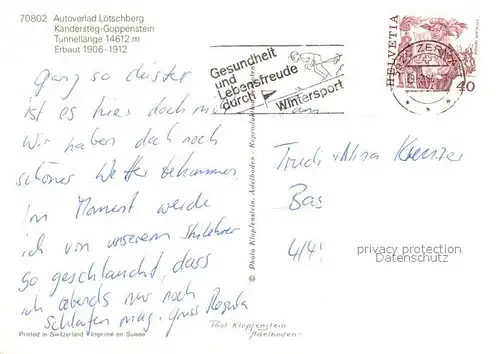 70802 Autoverlad Lötschberg
Kandersteg-Goppenstein
Tunnellänge 14612 m
Erbaut 1906-1912
Gesundheit
und
Lebensfreude
durch
Wintersport
3920 ZERMATT
HELVETIA
40
ganz so düster
ist es hier doch nicht
Wir haben doch noch
schönes Wetter bekommen.
Im Moment werde
ich von unserem Skilehrer
so geschlaucht, dass
ich abends nur noch
schlafen mag. Gruss Regula
© Photo Klopfenstein, Adelboden
Trudi + Nina
Bas
privacy protection
Datenschutz
Printed in Switzerland - Imprimé en Suisse
Phot. Klopfenstein
Adelboden